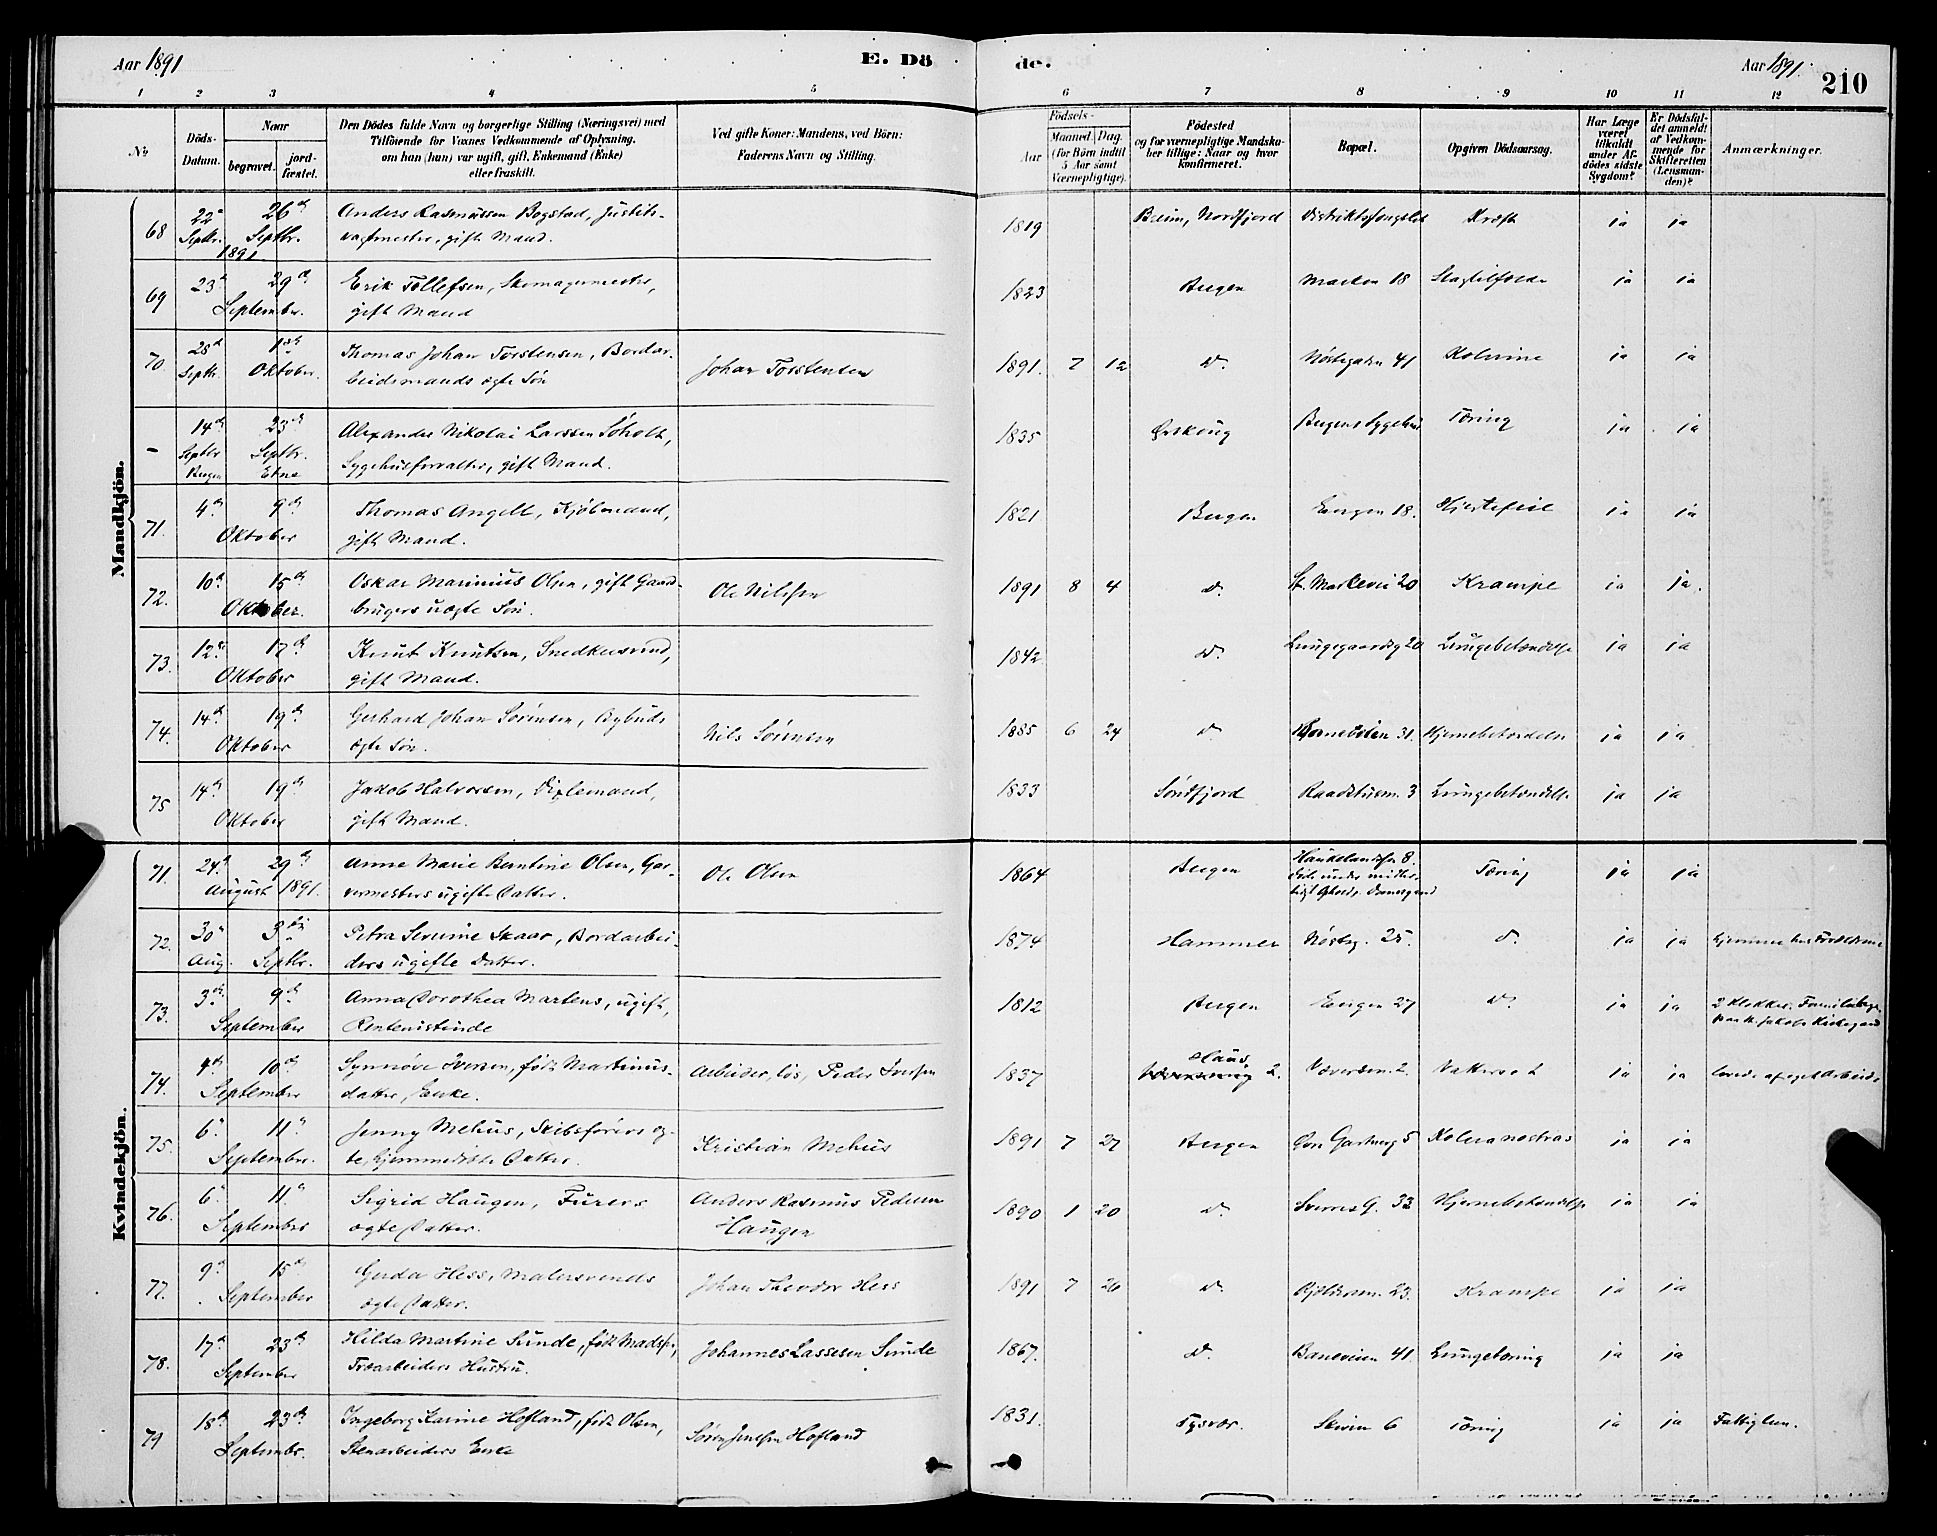 Aar 1891
E. Dö
de.
Aar 1891.
210
1 2 3 4 5 6 7 8 9 10 11 12
No
Döds-
Datum.
Naar
begravet.
jord-
fæstet.
Den Dödes fulde Navn og borgerlige Stilling (Næringsvei) med
Tilföiende for Voxnes Vedkommende af Oplysning,
om han (hun) var ugift, gift, Enkemand (Enke)
eller fraskilt.
Ved gifte Koner: Mandens, ved Börn:
Faderens Navn og Stilling.
Födsels-
Aar
Maaned.
Dag.
(for Börn indtil
5 Aar samt
Værnepligtige).
Födested
og for værnepligtige Mandska-
ber tillige: Naar og hvor
konfirmeret.
Bopæl.
Opgiven Dödsaarsag.
Har Læge
været
tilkaldt
under Af-
dödes sidste
Sygdom?
Er Dödsfal-
det anmeldt
af Vedkom-
mende for
Skifteretten
(Lensman-
den)?
Anmærkninger.
Mandkjön.
68 22de Septbr. 26de Septbr. 1891 Anders Rasmussen Bogstad, Justits-
vagtmester, gift Mand. 1819 Breim, Nordfjord Kræft ja ja
69 23de 29de September. Erik Tollefsen, Skomagermester,
gift Mand 1823 Bergen Marken 18 ja ja
70 28de Septbr. 1ste Oktober. Thomas Johan Torstensen, Bordar-
beidsmands ægte Søn Johan Torstensen 1891. 7 12 do. Nøstegaden 41 Kolerine ja ja
- 14de Septbr Bergen 23de Septbr. Etne Alexander Nikolai Larssen Søholt,
Sygehusforvalter, gift Mand. 1835 Ørskoug Bergens Sygehus Tæring ja ja
71. 4de 9de Oktober Thomas Angell, Kjøbmand,
gift Mand. 1821 Bergen Engen 18. Hjertefeil ja ja
72. 10de 15de Oktober. Oskar Marinius Olsen, gift Gaard-
brugers uægte Søn. Ole Nilssen 1891 8 4 do. St. Markevei 20 Krampe ja ja.
73. 12te 17de Oktober Knut Knutsen, Snedkersvend,
gift Mand. 1842 do. Lungegaardsg 20 Lungebetændelse ja ja
74. 14de 19de Oktober Gerhard Johan Sørensen, Bybuds
ægte Søn. Nils Sørensen 1885 6 24 do. 31. Hjernebetændelse ja ja
75 14de 19de Oktober Jakob Halvorsen,
gift Mand. 1833 Søndfjord Raadstuen 3 Lungebetændelse ja ja
Kvindekjön.
71. 24de 29de August 1891. Anne Marie Berntine Olsen, Gar-
vermesters ugifte Datter. Ole Olsen 1864 Bergen 8. Tæring ja ja
72. 30te Aug. 3die Septbr. Petra Severine Skaar, Bordarbei-
ders ugifte Datter. 1874 Hammer Nøsteg. 25. do. ja ja hjemme hos Forældrene
73. 3die 9de September Anna Dorothea Martens, ugift,
Rentenistinde 1812 Bergen Engen 27 do. ja ja 2 Klokker.
paa St. Jakobs Kirkegaard
74. 4de 10de September Synnøve Iversen, født Martinus-
datter, Enke. Arbeider, løs, Peder Iversen 1837 Haus 2. 2. Vattersot ja ja levede af eget Arbeide
75. 6te 11te September. Jenny Mehus, Skibsførers æg-
te, hjemmedøbte Datter. Kristian Mehus 1891 7 27 Bergen 5 Kolera nostras ja ja
76. 6te 11te September Sigrid Haugen, Furers
ægte Datter. Anders Rasmus Pedersen
Haugen 1890 1 20 do. Sverres G. 33 Hjernebetændelse ja ja
77. 9de 15de September Gerda Hess, Malersvends
ægte Datter. Johan Theodor Hess 1891 7 26 do. 23. Krampe ja ja
78. 17de 23de September Hilda Martine Sunde, født Madsen,
Træarbeiders Hustru. Johannes Lassesen Sunde 1867. do. Baneveien 41. Lungetæring ja ja
79 18de 23de Septembr. Ingeborg Karine Hofland, født Olsen,
Stenarbeiders Enke Søren Jenssen Hofland 1831. Tysvær. Skiven 6 Tæring ja ja Fattiglem.